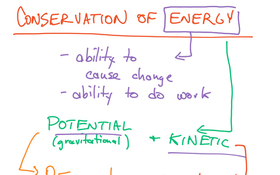 CONSERVATION OF ENERGY
- ability to
cause change
- ability to do work
POTENTIAL + KINETIC
(gravitational)